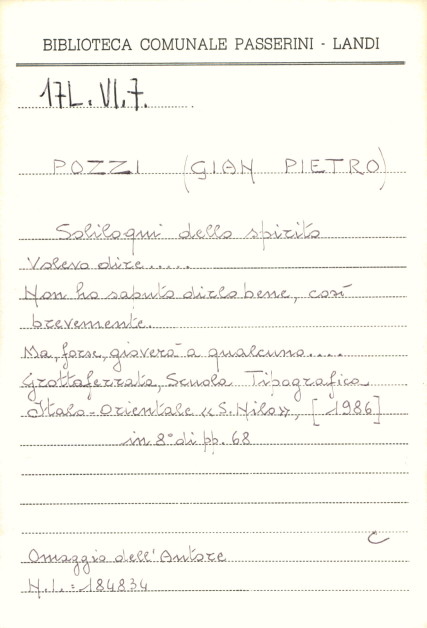 BIBLIOTECA COMUNALE PASSERINI - LANDI
17L. VI. 7.
POZZI (GIAN PIETRO)
Soliloqui dello spirito
Volevo dire.....
Non ho saputo dirlo bene, così
brevemente.
Ma, forse, gioverà a qualcuno....
Grottaferrata, Scuola Tipografica
Italo-Orientale «S. Nilo», [1986]
in 8° di pp. 68
C
Omaggio dell'Autore
N.I.: 184834